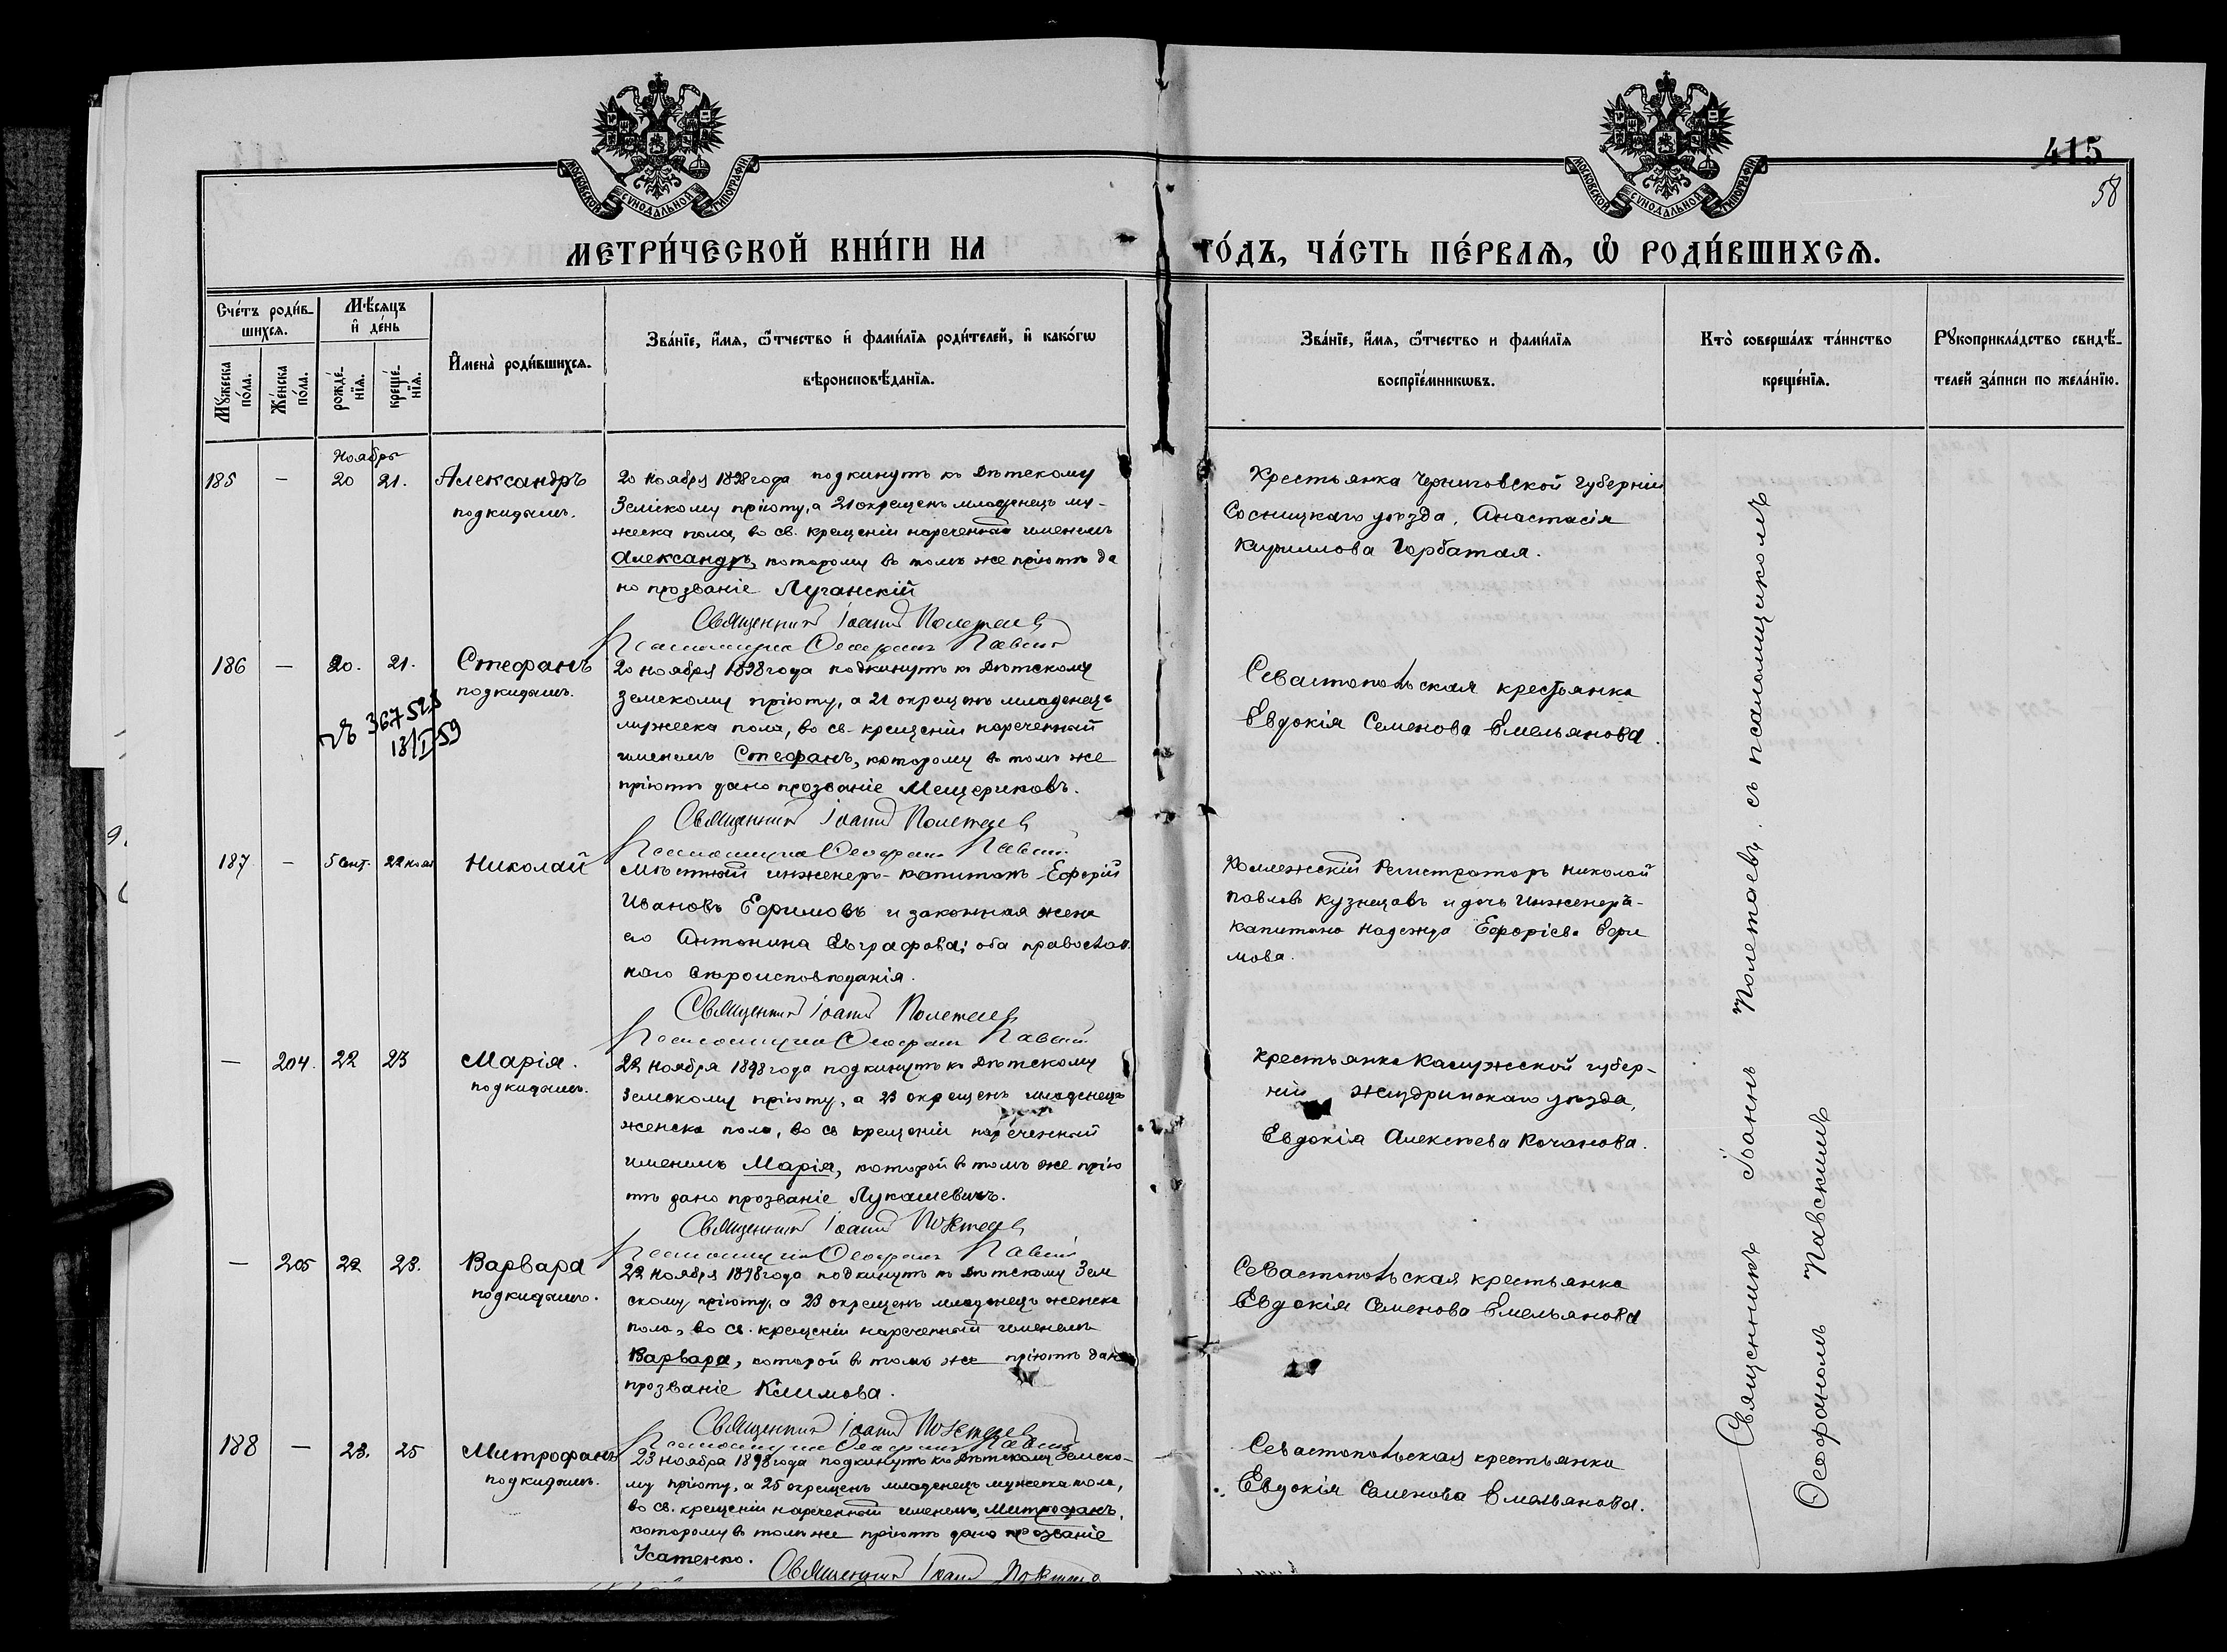 МОСКОВСКОЙ СУНОДАЛЬНОЙ ТИПОГРАФІИ
МОСКОВСКОЙ СУНОДАЛЬНОЙ ТИПОГРАФІИ
415
58
МЕТРИ́ЧЕСКОЙ КНИ́ГИ НА
ГО́ДЪ, ЧА́СТЬ ПЕ́РВАѦ, Ѡ҆ РОДИ́ВШИХСѦ.
Сче́тъ роди́в-
шихсѧ.
Мѣ́сѧцъ
и҆ де́нь
Мꙋ́жеска
по́ла.
Же́нска
по́ла.
рожде́-
нїѧ.
креще́-
нїѧ.
И҆мена̀ роди́вшихсѧ.
Зва́нїе, и҆́мѧ, ѻ҆́тчество и҆ фами́лїѧ роди́телей, и҆ како́гѡ
вѣроисповѣ́данїѧ.
Зва́нїе, и҆́мѧ, ѻ҆́тчество и фами́лїѧ
воспрїе́мникѡвъ.
Кто̀ соверша́лъ та́инство
креще́нїѧ.
Рꙋкоприкла́дство свидѣ́-
телей за́писи по жела́нїю.
Ноябрь
185 — 20 21. Александръ
подкидышъ.
20 ноября 1898 года подкинутъ къ Дѣтскому
Земскому пріюту, а 21 окрещенъ младенецъ му-
жеска пола, во св. крещеніи нареченный именемъ
Александръ, которому въ томъ же пріютѣ да
но прозваніе Луганскій
Священникъ Іоаннъ Полетаевъ
Псаломщикъ Ѳеофанъ Павскій
Крестьянка Черниговской губерніи
Сосницкаго уѣзда, Анастасія
Кириллова Горбатая.
186 — 20. 21. Стефанъ
подкидышъ.
№ 367525
13/I 59
20 ноября 1898 года подкинутъ къ Дѣтскому
земскому пріюту, а 21 окрещенъ младенецъ
мужеска пола, во св. крещеніи нареченный
именемъ Стефанъ, которому въ томъ же
пріютѣ дано прозваніе Мещериковъ.
Священникъ Іоаннъ Полетаевъ
Псаломщикъ Ѳеофанъ Павскій
Севастопольская крестьянка
Евдокія Семенова Емельянова.
187 — 5 Сент. 22 ноя Николай
Мѣстный инженеръ-капитанъ Ефорій
Ивановъ Ефимовъ и законная жена
его Антонина Евграфова; оба православ
наго вѣроисповѣданія.
Священникъ Іоаннъ Полетаевъ
Псаломщикъ Ѳеофанъ Павскій
Коллежскій Регистраторъ Николай
Павловъ Кузнецовъ и дочь Инженера-
капитана Надежда Ефоріева Ефи
мова.
— 204. 22 23 Марія.
подкидышъ.
22 ноября 1898 года подкинутъ къ Дѣтскому
Земскому пріюту, а 23 окрещенъ младенецъ
женска пола, во св крещеніи нареченный
именемъ Марія, которой въ томъ же прію
тѣ дано прозваніе Лукашевичъ.
Священникъ Іоаннъ Полетаевъ
Псаломщикъ Ѳеофанъ Павскій
Крестьянка Калужской губер-
ніи Жиздринскаго уѣзда,
Евдокія Алексѣева Кочанова.
— 205 22 23. Варвара
подкидышъ.
22 ноября 1898 года подкинутъ къ Дѣтскому Зем
скому пріюту, а 23 окрещенъ младенецъ женска
пола, во св. крещеніи нареченный именемъ
Варвара, которой въ томъ же пріютѣ дано
прозваніе Климова.
Священникъ Іоаннъ Полетаевъ
Псаломщикъ Ѳеофанъ Павскій
Севастопольская крестьянка
Евдокія Семенова Емельянова
188 — 23. 25 Митрофанъ
подкидышъ.
23 ноября 1898 года подкинутъ къ Дѣтскому Земско-
му пріюту, а 25 окрещенъ младенецъ мужеска пола,
во св. крещеніи нареченный именемъ, Митрофанъ,
которому въ томъ же пріютѣ дано прозваніе
Усатенко.
Священникъ Іоаннъ Полетаевъ
Севастопольская крестьянка
Евдокія Семенова Емельянова.
Священникъ Іоаннъ Полетаевъ, съ псаломщикомъ
Ѳеофаномъ Павскимъ